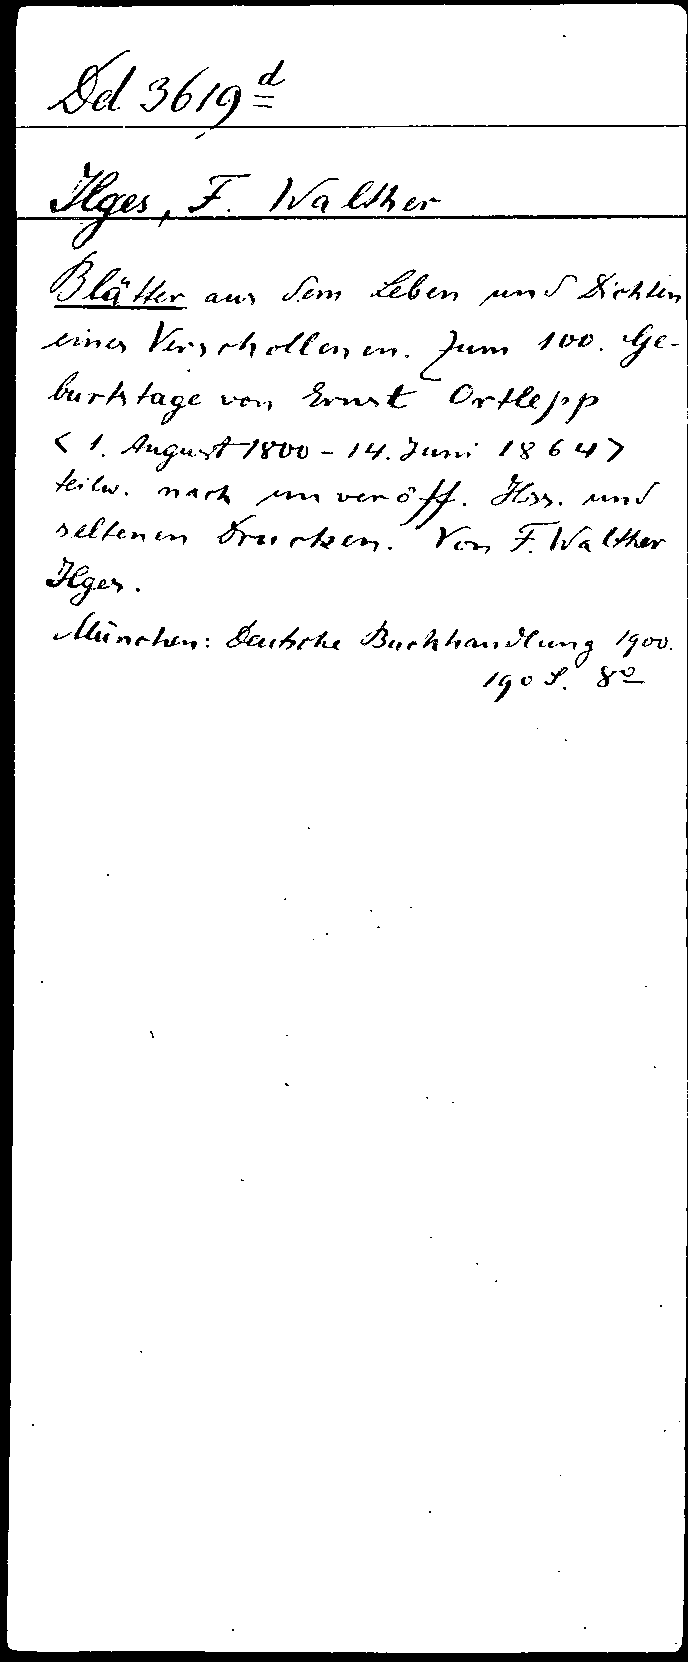 Dd 3619 d
Ilges, F. Walther
Blätter aus dem Leben und Dichten
eines Verschollenen. Zum 100. Ge-
burtstage von Ernst Ortlepp
< 1. August 1800 - 14. Juni 1864 >
teilw. nach unveröff. Hss. und
seltenen Drucken. Von F. Walther
Ilges.
München: Deutsche Buchhandlung 1900.
190 S. 8º